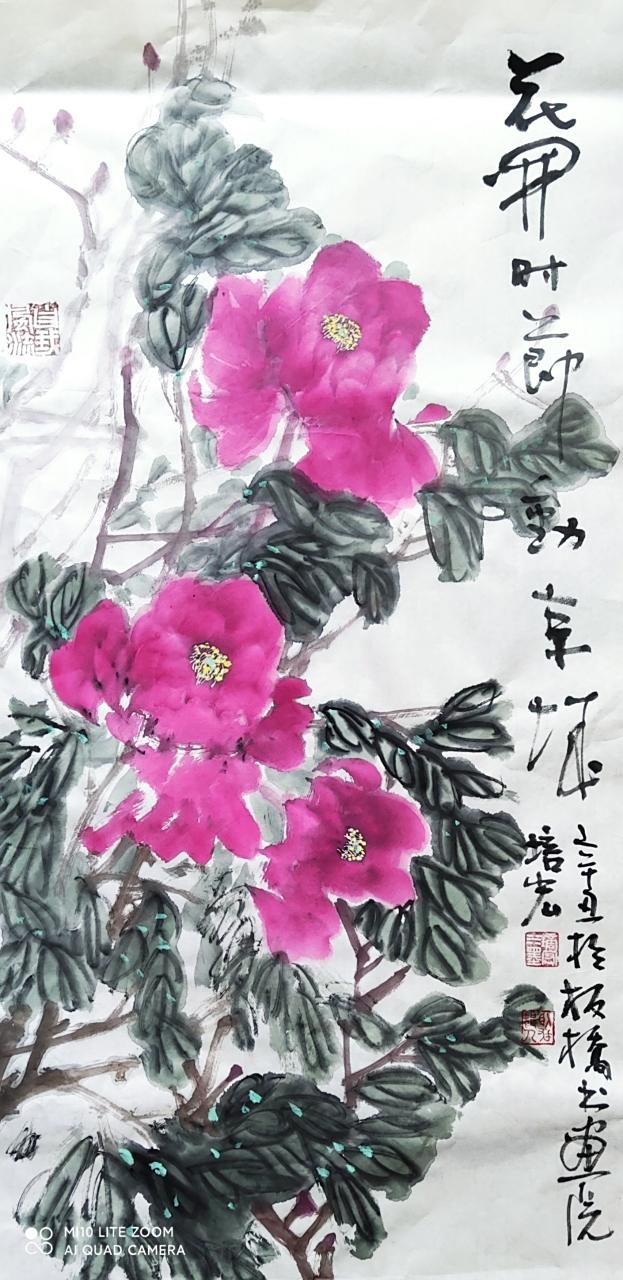 花开时节动京城
辛丑于板桥书画院
培宏
MI 10 LITE ZOOM
AI QUAD CAMERA